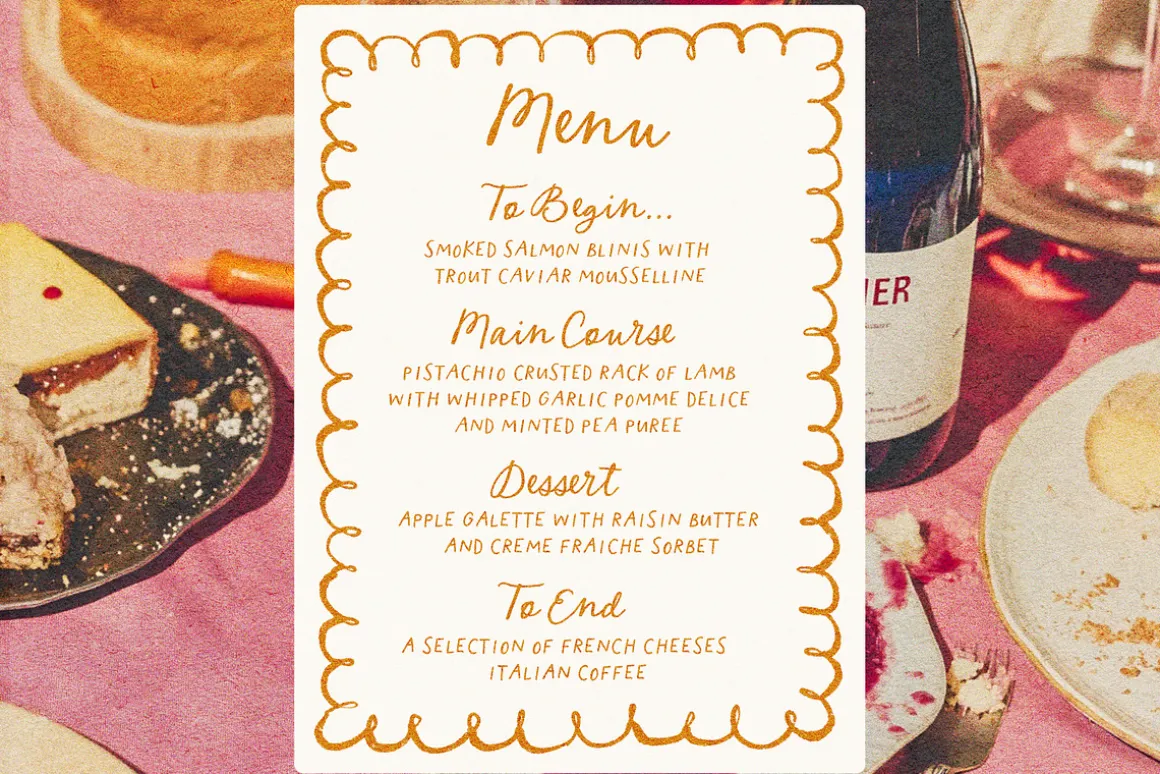 Menu
To Begin...
SMOKED SALMON BLINIS WITH
TROUT CAVIAR MOUSSELLINE
Main Course
PISTACHIO CRUSTED RACK OF LAMB
WITH WHIPPED GARLIC POMME DELICE
AND MINTED PEA PUREE
Dessert
APPLE GALETTE WITH RAISIN BUTTER
AND CREME FRAICHE SORBET
To End
A SELECTION OF FRENCH CHEESES
ITALIAN COFFEE
IER